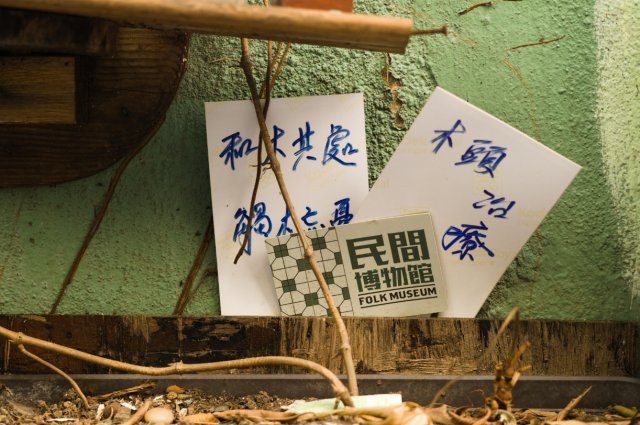 和木共處
觸木忘憂
木頭
治
療
民間
博物館
FOLK MUSEUM